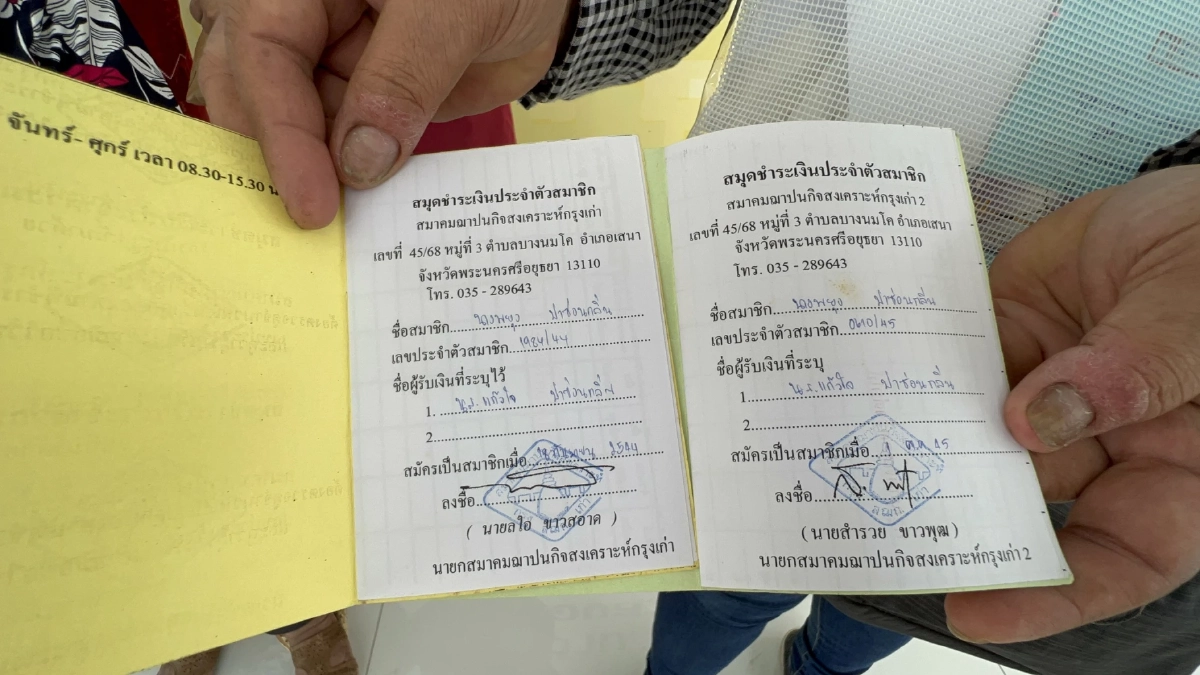 จันทร์- ศุกร์ เวลา 08.30-15.30 น
สมุดชำระเงินประจำตัวสมาชิก
สมาคมฌาปนกิจสงเคราะห์กรุงเก่า
เลขที่ 45/68 หมู่ที่ 3 ตำบลบางนมโค อำเภอเสนา
จังหวัดพระนครศรีอยุธยา 13110
โทร. 035 - 289643
ชื่อสมาชิก นางพยุง ปาซ่อนกลิ่น
เลขประจำตัวสมาชิก 1924/44
ชื่อผู้รับเงินที่ระบุไว้
1. น.ส. แก้วใจ ปาซ่อนกลิ่น
2.
สมัครเป็นสมาชิกเมื่อ กันยายน 2544
ลงชื่อ
( นายลใอ ขาวสอาด )
นายกสมาคมฌาปนกิจสงเคราะห์กรุงเก่า
สมุดชำระเงินประจำตัวสมาชิก
สมาคมฌาปนกิจสงเคราะห์กรุงเก่า 2
เลขที่ 45/68 หมู่ที่ 3 ตำบลบางนมโค อำเภอเสนา
จังหวัดพระนครศรีอยุธยา 13110
โทร. 035 - 289643
ชื่อสมาชิก นางพยุง ปาซ่อนกลิ่น
เลขประจำตัวสมาชิก 0610/45
ชื่อผู้รับเงินที่ระบุ
1. น.ส. แก้วใจ ปาซ่อนกลิ่น
2.
สมัครเป็นสมาชิกเมื่อ 1 ต.ค 45
ลงชื่อ
( นายสำรวย ขาวพุฒ )
นายกสมาคมฌาปนกิจสงเคราะห์กรุงเก่า 2